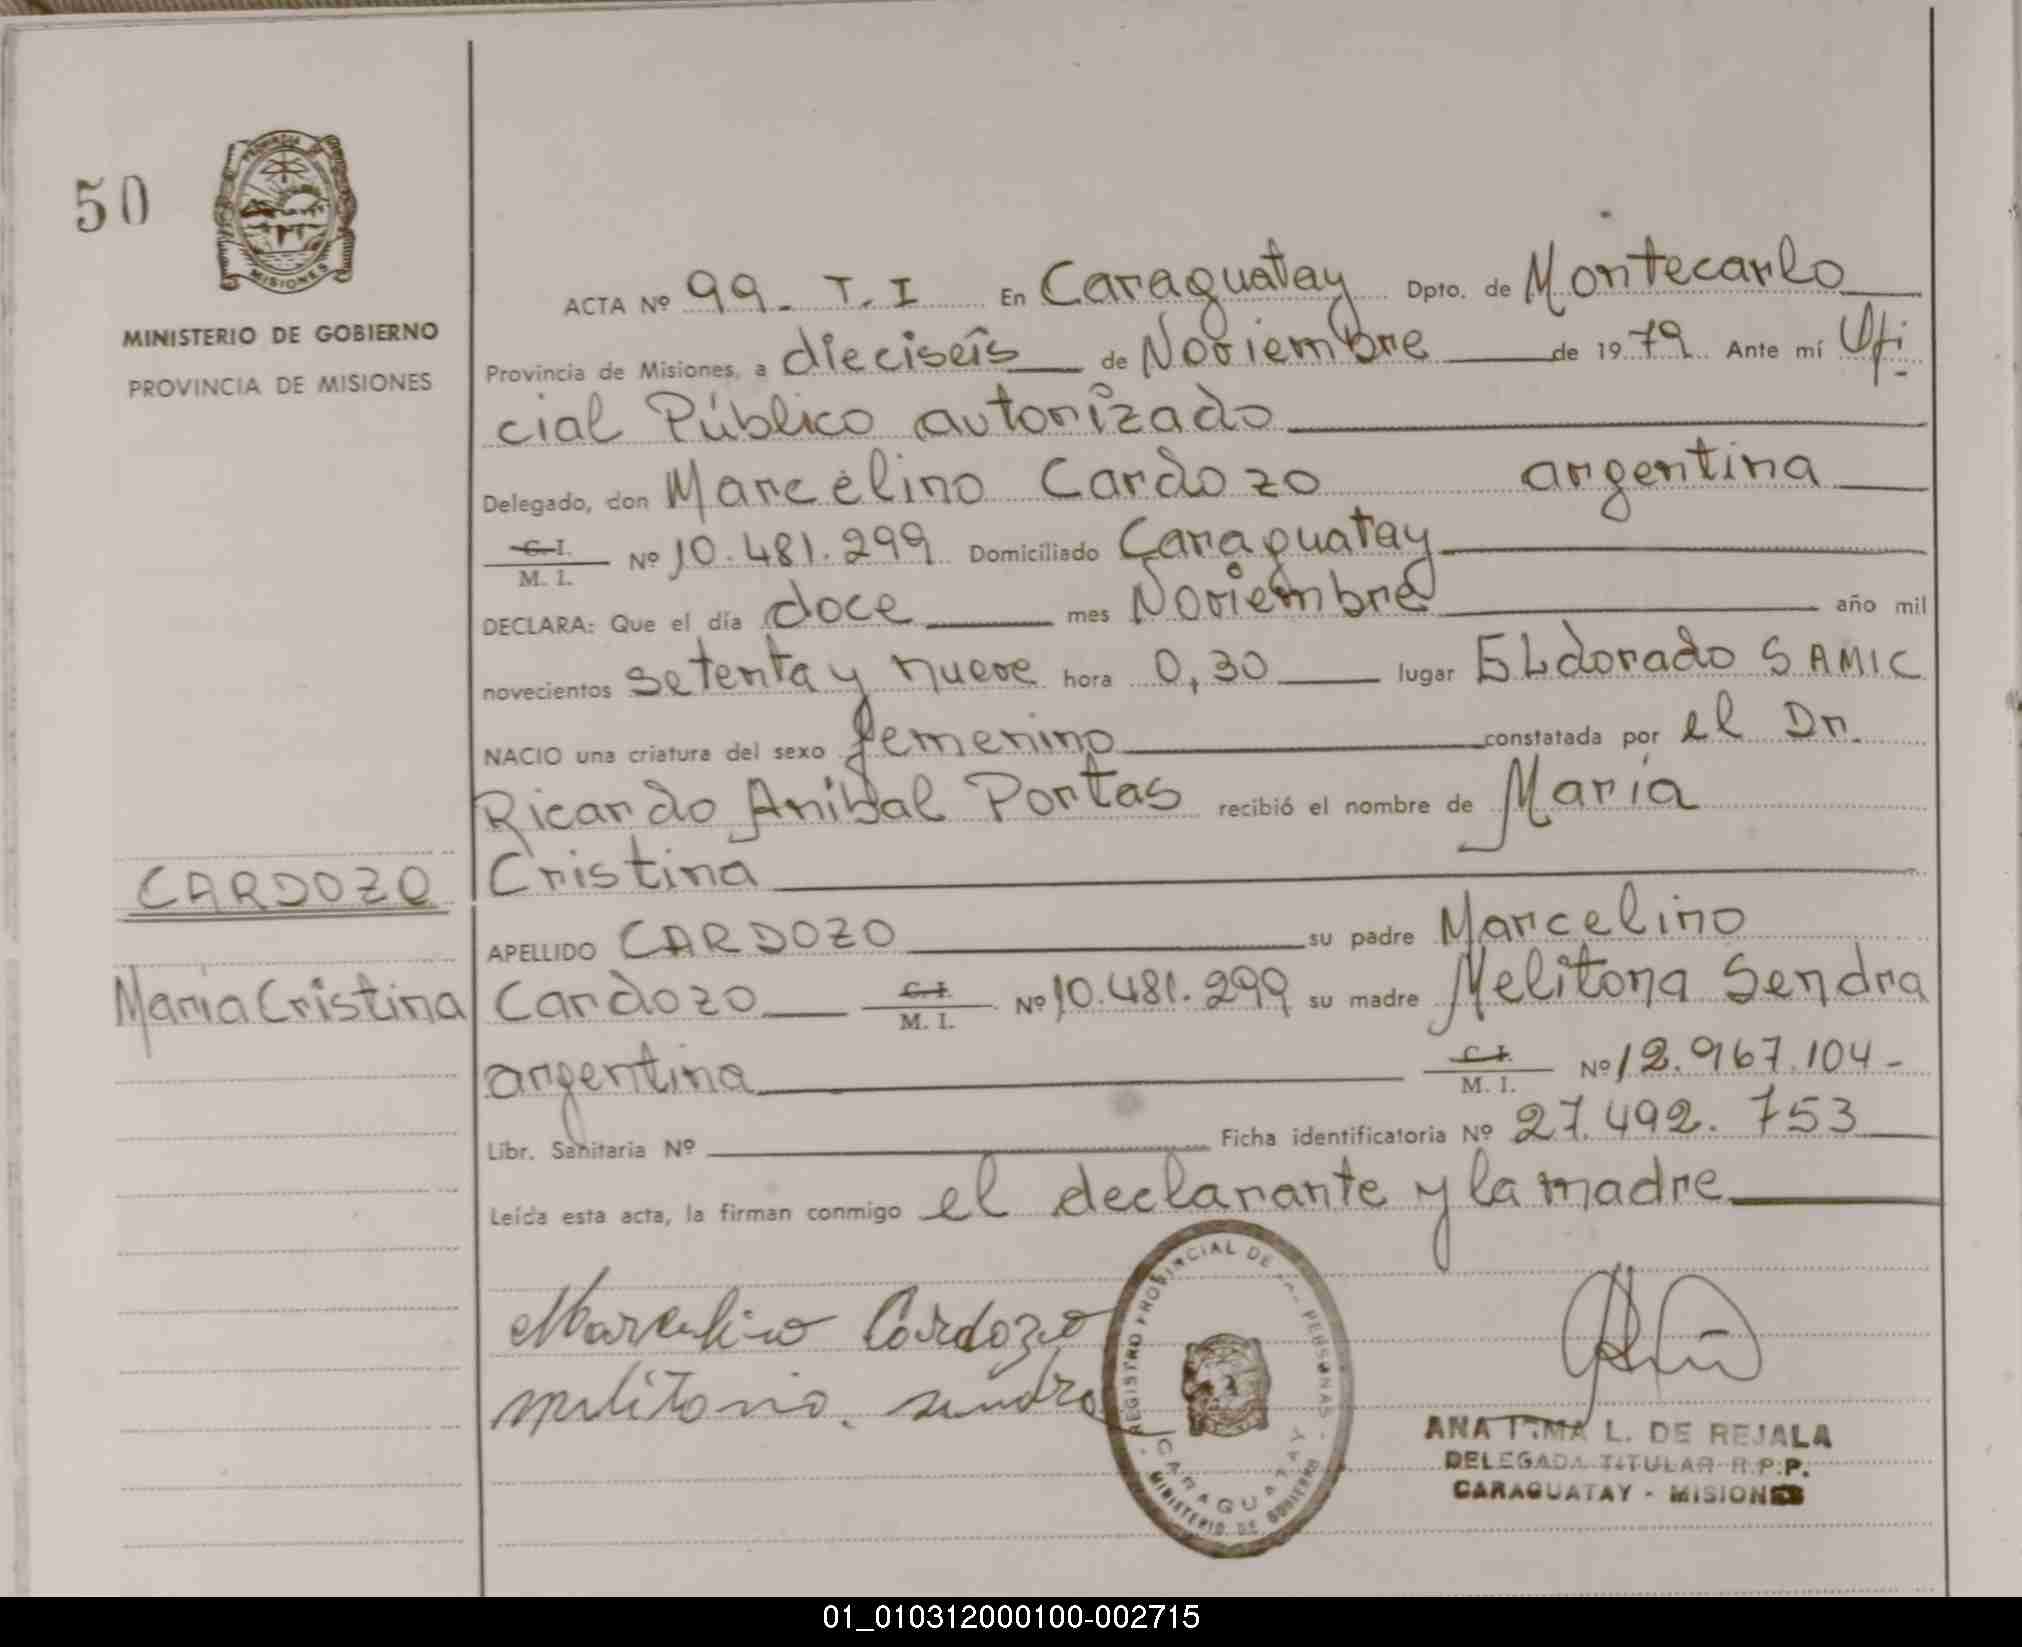 50
PROVINCIA DE
MISIONES
MINISTERIO DE GOBIERNO
PROVINCIA DE MISIONES
ACTA Nº 99_ T.I En Caraguatay Dpto. de Montecarlo
Provincia de Misiones, a dieciseis de Noviembre de 1979 Ante mí Ofi
cial Público autorizado
Delegado, don Marcelino Cardozo argentina
C. I.
M. I. Nº 10.481.299 Domiciliado Caraguatay
DECLARA: Que el día doce mes Noviembre año mil
novecientos setenta y nueve hora 0,30 lugar ELdorado SAMIC
NACIO una criatura del sexo femenino constatada por el Dr.
Ricardo Anibal Portas recibió el nombre de María
Cristina
CARDOZO
María Cristina
APELLIDO CARDOZO su padre Marcelino
Cardozo C. I. M. I. Nº 10.481.299 su madre Melitona Sendra
argentina C. I. M. I. Nº 12.967.104-
Libr. Sanitaria Nº Ficha identificatoria Nº 27.492.753
Leída esta acta, la firman conmigo el declarante y la madre
Marcelino Cardozo
melitona. sendra
REGISTRO PROVINCIAL DE PERSONAS
CARAGUATAY
MINISTERIO DE GOBIERNO
ANA L. DE REJALA
DELEGADA TITULAR R.P.P.
CARAGUATAY - MISIONES
01_010312000100-002715